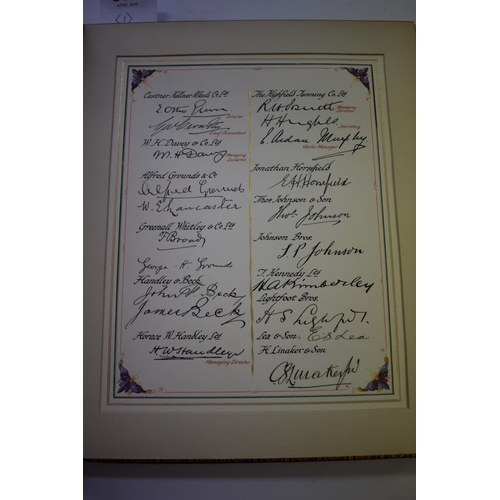 (1)
Castner Kellner Alkali Co Ltd
Director
Chief Accountant
W. H. Davey & Co Ltd
M. H. Davey
Managing Director
Alfred Grounds & Co
Alfred Grounds
W. E. Lancaster
Greenall Whitley & Co Ltd
George H. Grounds
Handley & Beck
John W. Beck
James Beck
Horace W. Handley Ltd
H W Handley
Managing Director
The Highfield Tanning Co Ltd
Managing Director
H Hughes
Secretary
E. Aidan Murphy
Works Manager
Jonathan Horsfield
E H Horsfield
Thos Johnson & Son
Thos. Johnson
Johnson Bros.
S P Johnson
T. Kennedy Ltd
M A Kimberley
Lightfoot Bros.
H S Lightfoot.
Lea & Son.
E S Lea
H. Linaker & Son